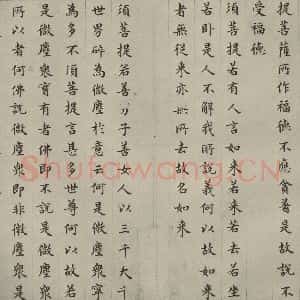 提菩薩所作福德不應貪著是故說不
受福德
須菩提若有人言如來若來若去若坐
若卧是人不解我所說義何以故如來
者無從來亦無所去故名如來
須菩提若善男子善女人以三千大千
世界碎為微塵於意云何是微塵衆寧
為多不須菩提言甚多世尊何以故若
是微塵衆實有者佛即不說是微塵衆
所以者何佛說微塵衆即非微塵衆是
Shufawang.CN